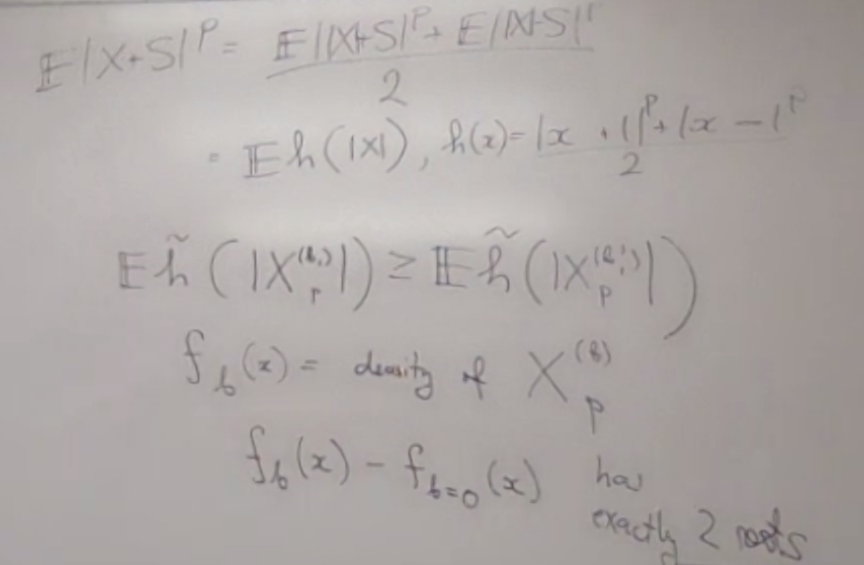 E|X+S|^P = (E||X|+S|^P + E||X|-S|^P)/2
= E h(|X|), h(x) = (|x+1|^P + |x-1|^P)/2
E h̃(|X_p^{(b)}|) ≥ E h̃(|X_p^{(b')}|)
f_b(x) = density of X_p^{(b)}
f_b(x) - f_{b=0}(x) has
exactly 2 roots